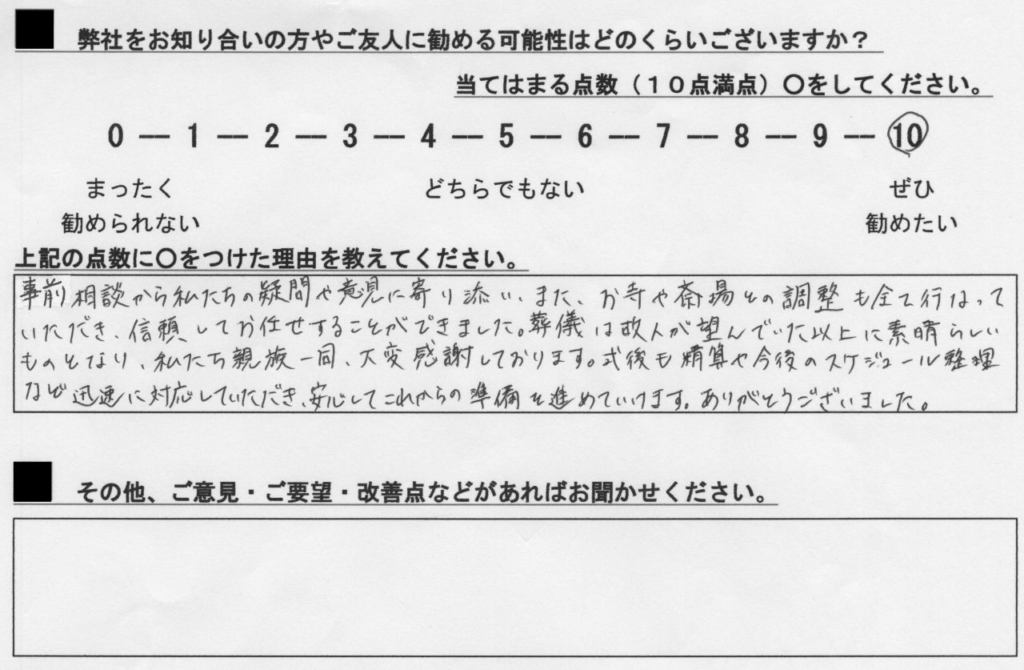 弊社をお知り合いの方やご友人に勧める可能性はどのくらいございますか？
当てはまる点数（１０点満点）〇をしてください。
0 ― 1 ― 2 ― 3 ― 4 ― 5 ― 6 ― 7 ― 8 ― 9 ― 10
まったく どちらでもない ぜひ
勧められない 勧めたい
上記の点数に〇をつけた理由を教えてください。
事前相談から私たちの疑問や意見に寄り添い、また、お寺や斎場との調整も全て行なって
いただき、信頼してお任せすることができました。葬儀は故人が望んでいた以上に素晴らしい
ものとなり、私たち親族一同、大変感謝しております。式後も精算や今後のスケジュール整理
など迅速に対応していただき、安心してこれからの準備を進めていけます。ありがとうございました。
その他、ご意見・ご要望・改善点などがあればお聞かせください。